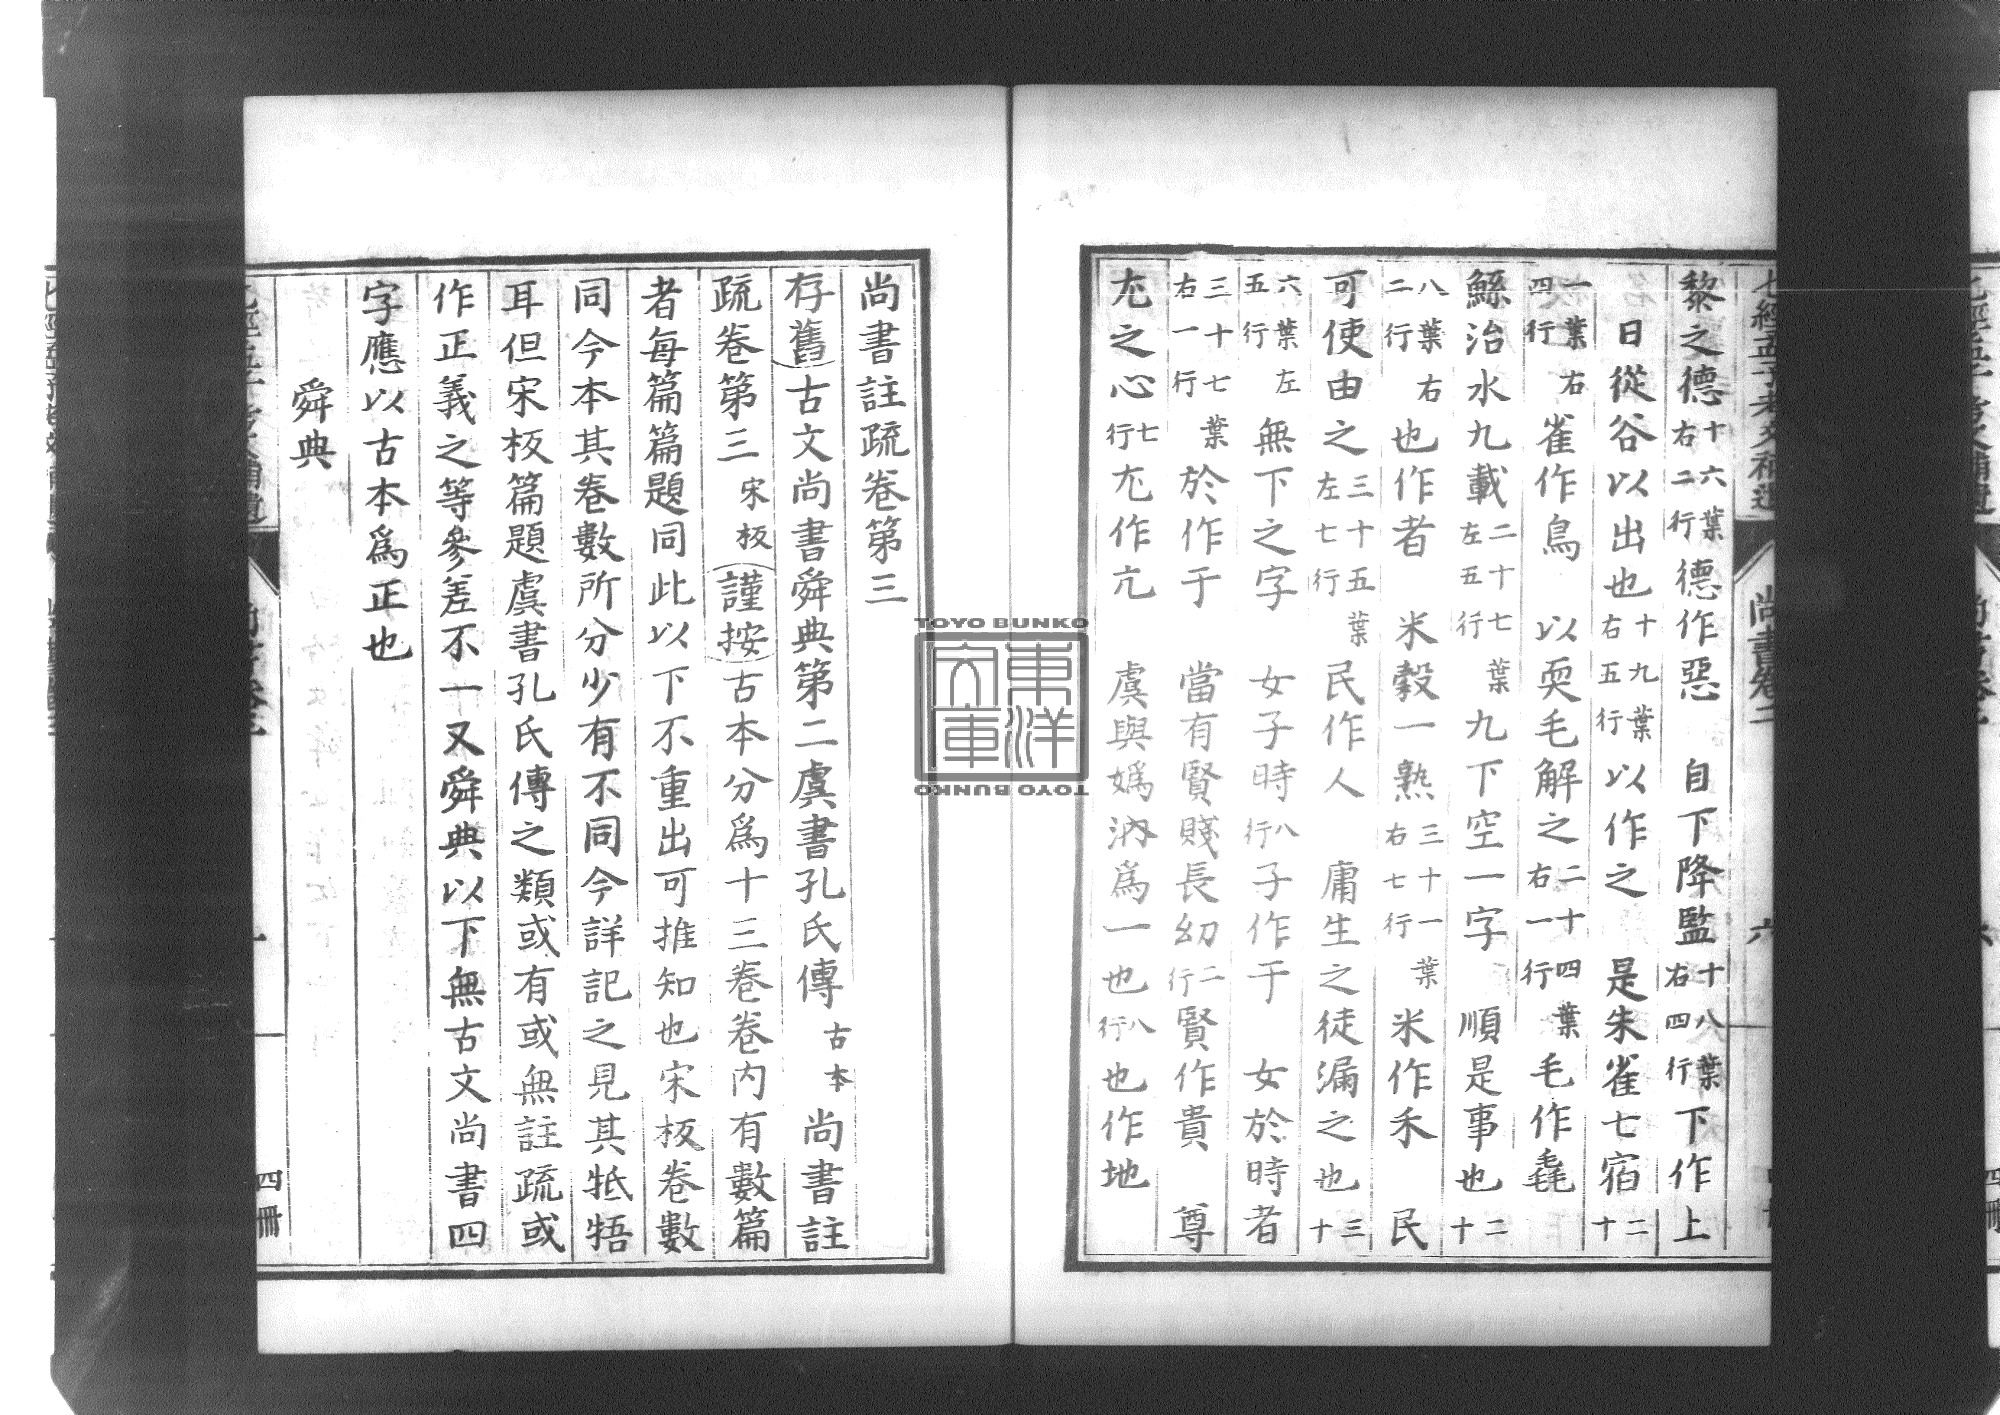 七經孟子考文補遺 尚書卷二 六
黎之德十六葉右二行德作惡 自下降監十八葉右四行下作上
日從谷以出也十九葉右五行以作之 是朱雀七宿二十
一葉右四行雀作鳥 以耎毛解之二十四葉右一行毛作毳
鯀治水九載二十七葉左五行九下空一字 順是事也二十
八葉右二行也作者 米穀一熟三十一葉右七行米作禾 民
可使由之三十五葉左七行民作人 庸生之徒漏之也三十
六葉左五行無下之字 女子時八行子作于 女於時者
三十七葉右一行於作于 當有賢賤長幼二行賢作貴 尊
尢之心七行尢作亢 虞與嬀汭爲一也八行也作地
TOYO BUNKO
東洋文庫
TOYO BUNKO
尚書註疏卷第三
存舊古文尚書舜典第二虞書孔氏傳古本尚書註
疏卷第三宋板謹按古本分爲十三卷卷内有數篇
者每篇篇題同此以下不重出可推知也宋板卷數
同今本其卷數所分少有不同今詳記之見其牴牾
耳但宋板篇題虞書孔氏傳之類或有或無註疏或
作正義之等參差不一又舜典以下無古文尚書四
字應以古本爲正也
舜典
四冊